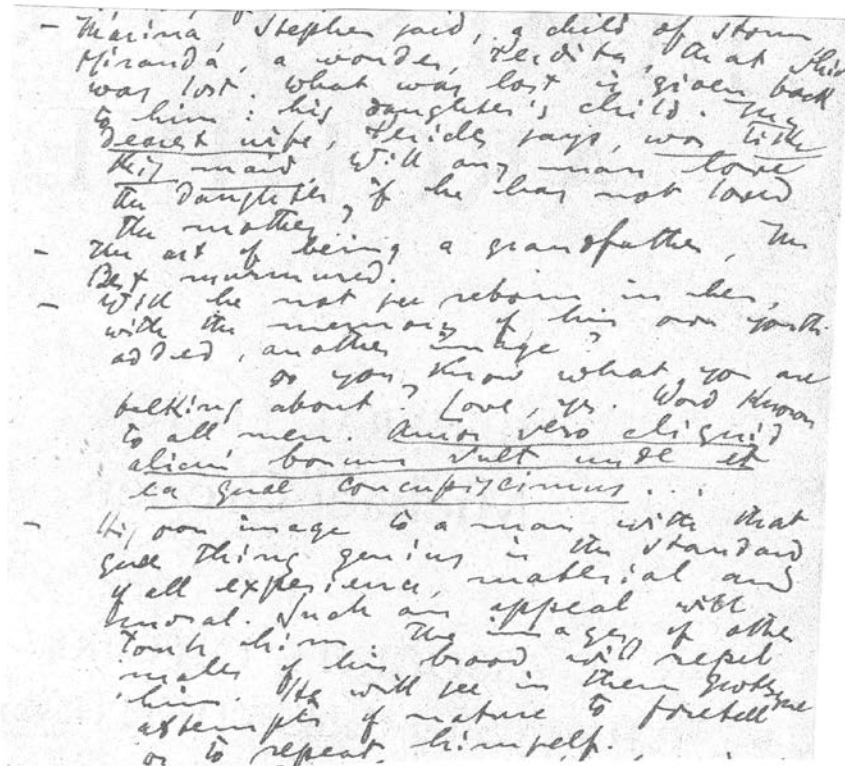 — Marina, Stephen said, a child of storm
Miranda, a wonder, Perdita, that which
was lost. What was lost is given back
to him: his daughter's child. My
dearest wife, Pericles says, was like
this maid. Will any man love
the daughter if he has not loved
the mother?
— The art of being a grandfather, Mr
Best murmured.
— Will he not see reborn in her,
with the memory of his own youth
added, another image?
Do you know what you are
talking about? Love, yes. Word known
to all men. Amor vero aliquid
alicui bonum vult unde et
ea quae concupiscimus...
— His own image to a man with that
queer thing genius is the standard
of all experience, material and
moral. Such an appeal will
touch him. The images of other
males of his brood will repel
him. He will see in them grotesque
attempts of nature to foretell
or to repeat himself.